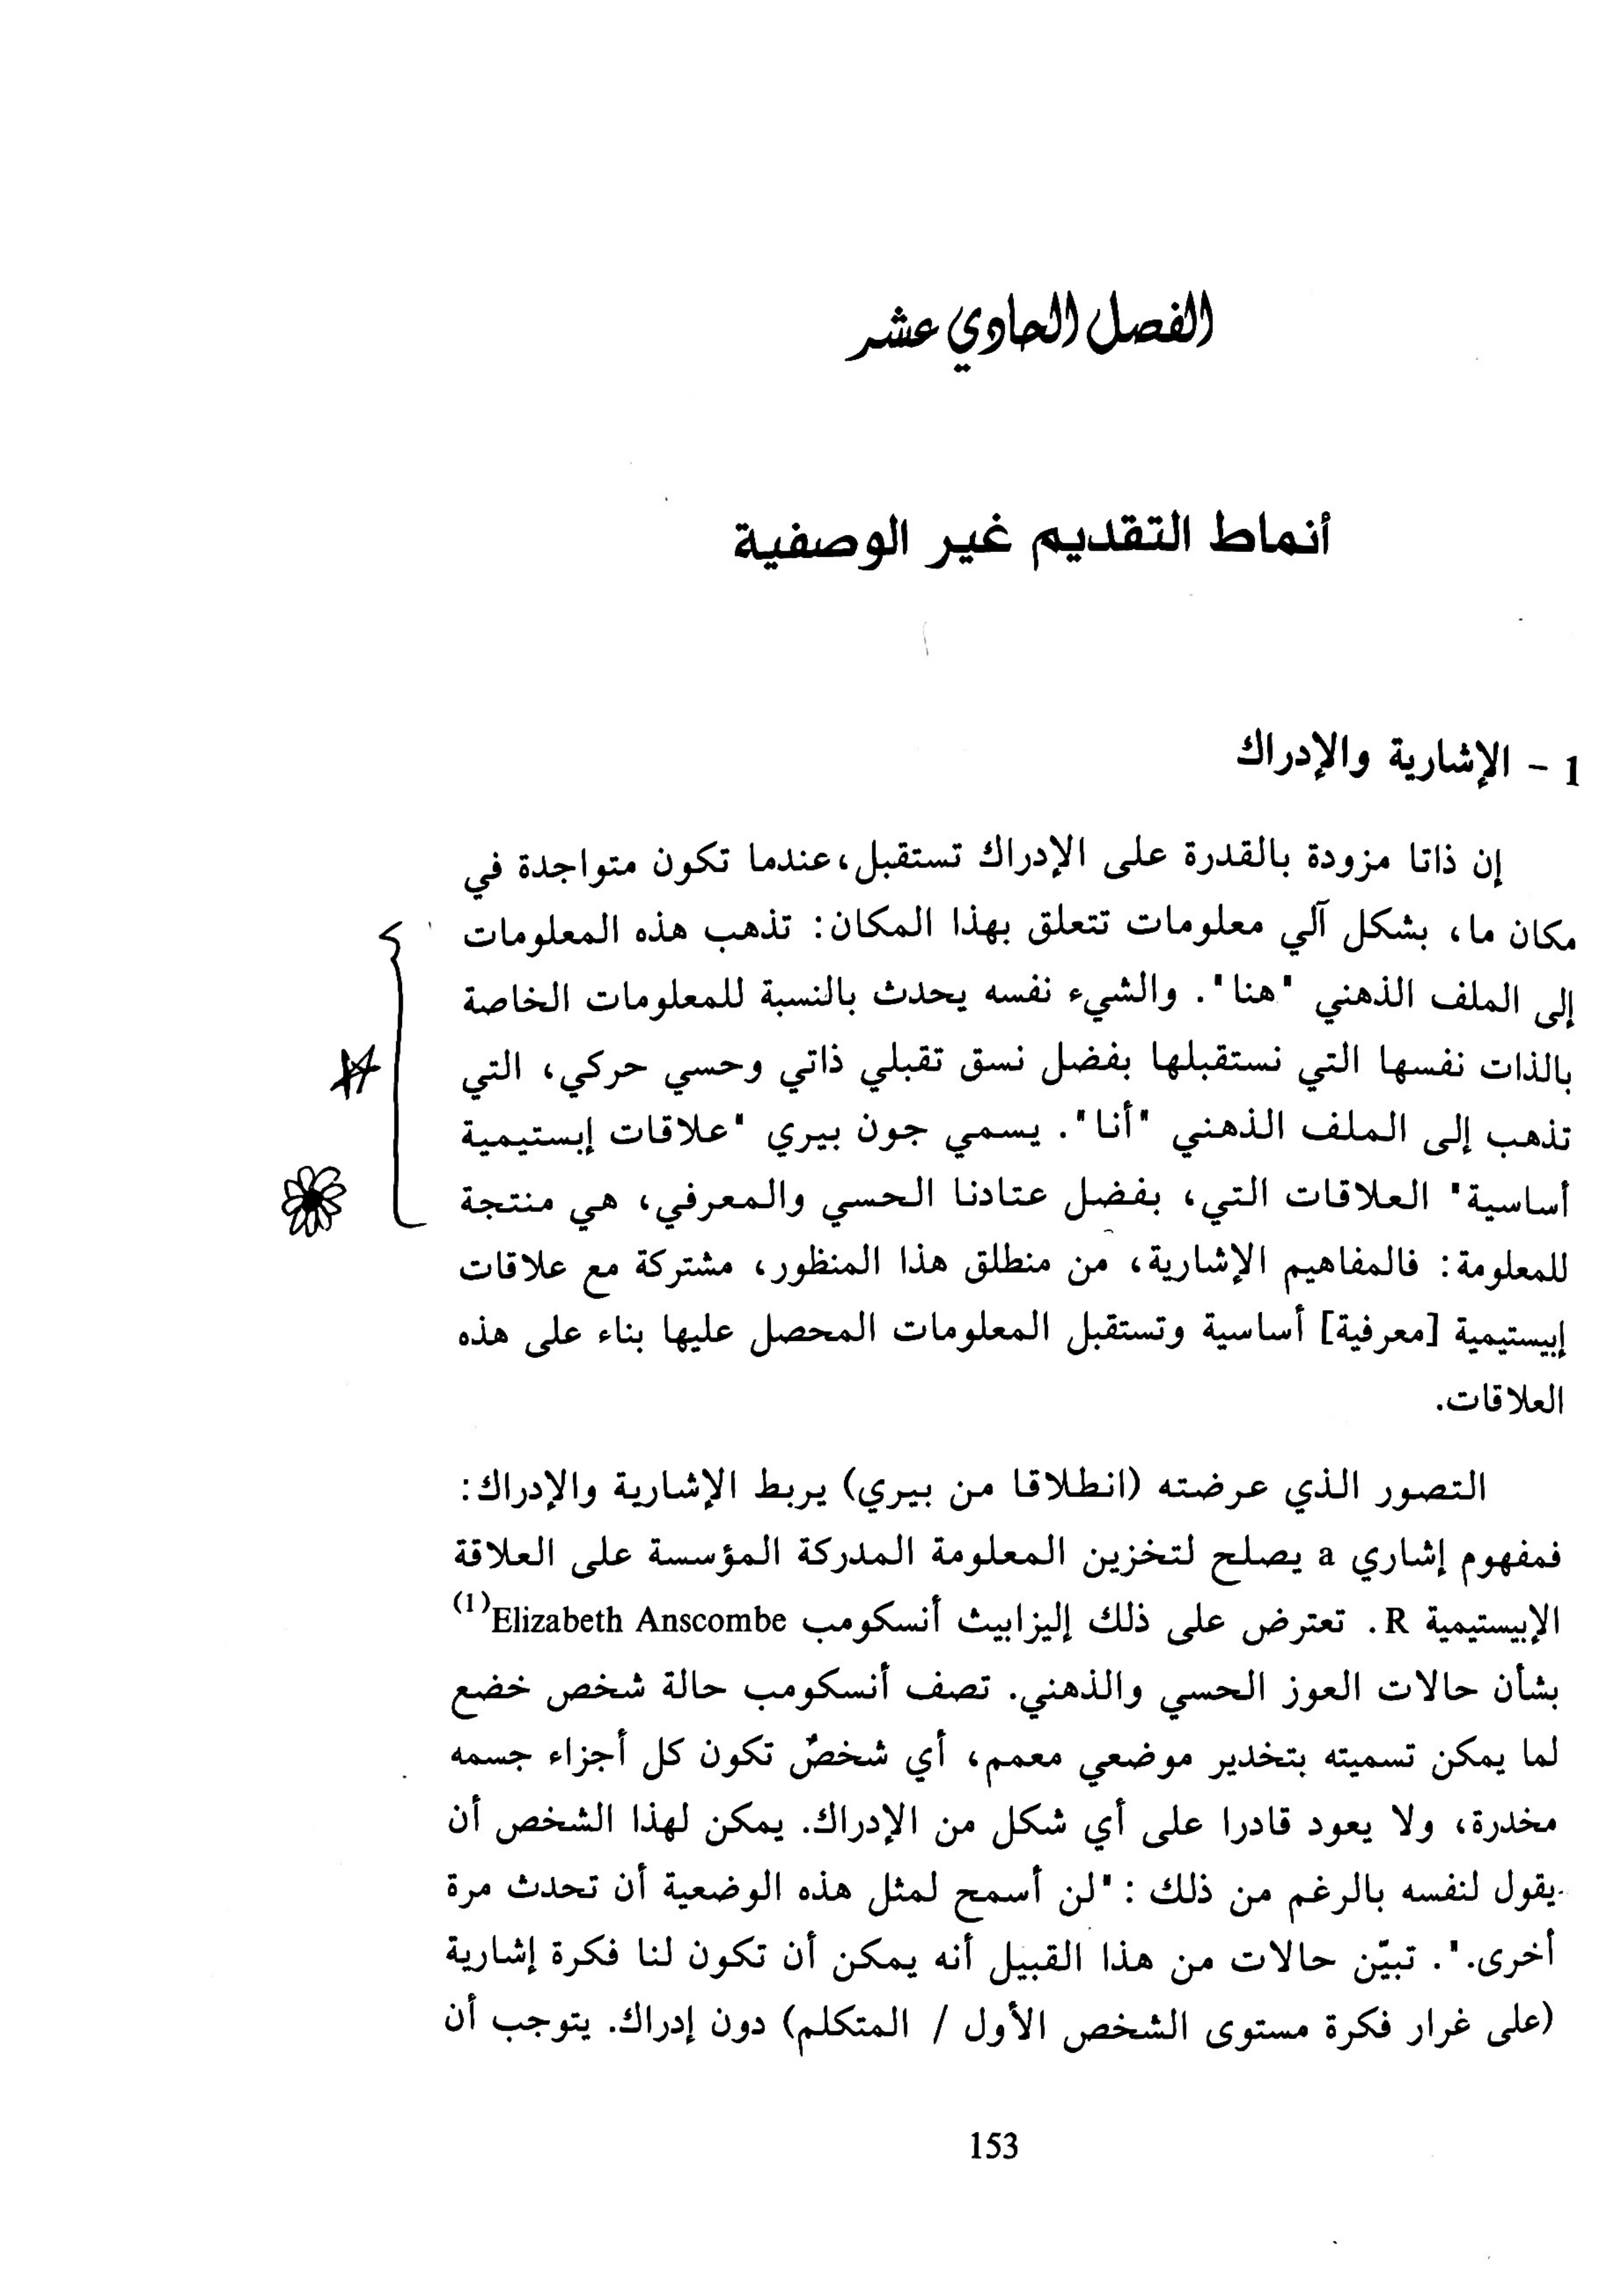 الفصل الحادي عشر
أنماط التقديم غير الوصفية
1 - الإشارية والإدراك
إن ذاتا مزودة بالقدرة على الإدراك تستقبل، عندما تكون متواجدة في
مكان ما، بشكل آلي معلومات تتعلق بهذا المكان: تذهب هذه المعلومات
إلى الملف الذهني "هنا". والشيء نفسه يحدث بالنسبة للمعلومات الخاصة
بالذات نفسها التي نستقبلها بفضل نسق تقبلي ذاتي وحسي حركي، التي
تذهب إلى الملف الذهني "أنا". يسمي جون بيري "علاقات إبستيمية
أساسية" العلاقات التي، بفضل عتادنا الحسي والمعرفي، هي منتجة
للمعلومة: فالمفاهيم الإشارية، من منطلق هذا المنظور، مشتركة مع علاقات
إبيستيمية [معرفية] أساسية وتستقبل المعلومات المحصل عليها بناء على هذه
العلاقات.
التصور الذي عرضته (انطلاقا من بيري) يربط الإشارية والإدراك:
فمفهوم إشاري a يصلح لتخزين المعلومة المدركة المؤسسة على العلاقة
الإبيستيمية R. تعترض على ذلك إليزابيث أنسكومب Elizabeth Anscombe(1)
بشأن حالات العوز الحسي والذهني. تصف أنسكومب حالة شخص خضع
لما يمكن تسميته بتخدير موضعي معمم، أي شخصٌ تكون كل أجزاء جسمه
مخدرة، ولا يعود قادرا على أي شكل من الإدراك. يمكن لهذا الشخص أن
يقول لنفسه بالرغم من ذلك : "لن أسمح لمثل هذه الوضعية أن تحدث مرة
أخرى.". تبيّن حالات من هذا القبيل أنه يمكن أن تكون لنا فكرة إشارية
(على غرار فكرة مستوى الشخص الأول / المتكلم) دون إدراك. يتوجب أن
153